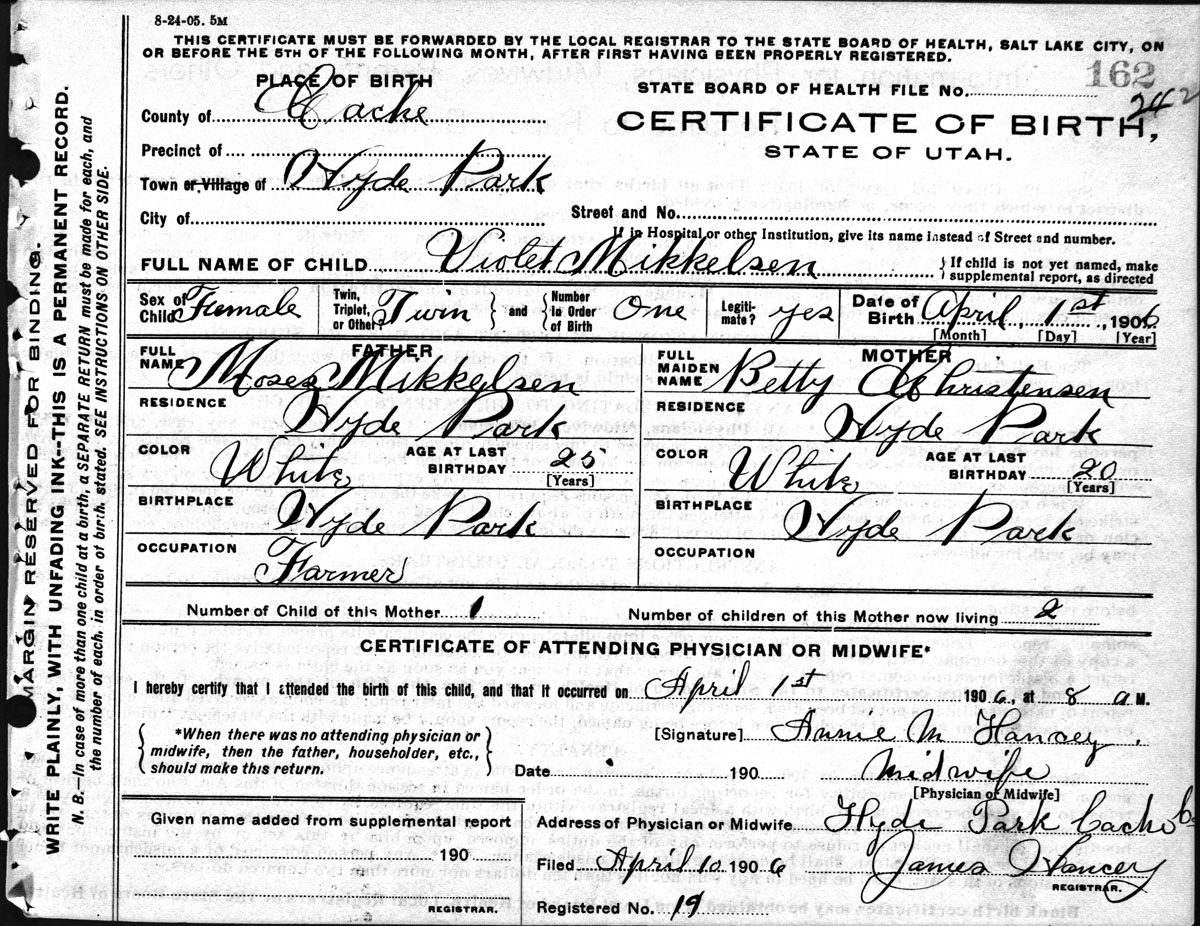 8-24-05. 5M
THIS CERTIFICATE MUST BE FORWARDED BY THE LOCAL REGISTRAR TO THE STATE BOARD OF HEALTH, SALT LAKE CITY, ON
OR BEFORE THE 5TH OF THE FOLLOWING MONTH, AFTER FIRST HAVING BEEN PROPERLY REGISTERED.
PLACE OF BIRTH
162
STATE BOARD OF HEALTH FILE No.
242
County of Cache
CERTIFICATE OF BIRTH,
STATE OF UTAH.
Precinct of
Town or Village of Hyde Park
City of
Street and No.
If in Hospital or other Institution, give its name instead of Street and number.
FULL NAME OF CHILD Violet Mikkelsen
{If child is not yet named, make
supplemental report, as directed
Sex of Child Female
Twin, Triplet, or Other? Twin } and { Number in Order of Birth One
Legiti-mate? yes
Date of Birth April, 1st, 1906
[Month] [Day] [Year]
FATHER
FULL NAME Moses Mikkelsen
RESIDENCE Hyde Park
COLOR White AGE AT LAST BIRTHDAY 25
[Years]
BIRTHPLACE Hyde Park
OCCUPATION Farmer
MOTHER
FULL MAIDEN NAME Betty Christensen
RESIDENCE Hyde Park
COLOR White AGE AT LAST BIRTHDAY 20
[Years]
BIRTHPLACE Hyde Park
OCCUPATION
Number of Child of this Mother 1 Number of children of this Mother now living 2
CERTIFICATE OF ATTENDING PHYSICIAN OR MIDWIFE*
I hereby certify that I attended the birth of this child, and that it occurred on April 1st 1906, at 8 a M.
{*When there was no attending physician or
midwife, then the father, householder, etc.,
should make this return.}
[Signature] Annie M Hancey.
Date 190
Midwife
[Physician or Midwife]
Given name added from supplemental report
190
REGISTRAR.
Address of Physician or Midwife Hyde Park Cache Co
Filed April 10 1906 James Hancey
REGISTRAR.
Registered No. 19
MARGIN RESERVED FOR BINDING.
WRITE PLAINLY, WITH UNFADING INK--THIS IS A PERMANENT RECORD.
N. B.—In case of more than one child at a birth, a SEPARATE RETURN must be made for each, and
the number of each, in order of birth, stated. SEE INSTRUCTIONS ON OTHER SIDE.